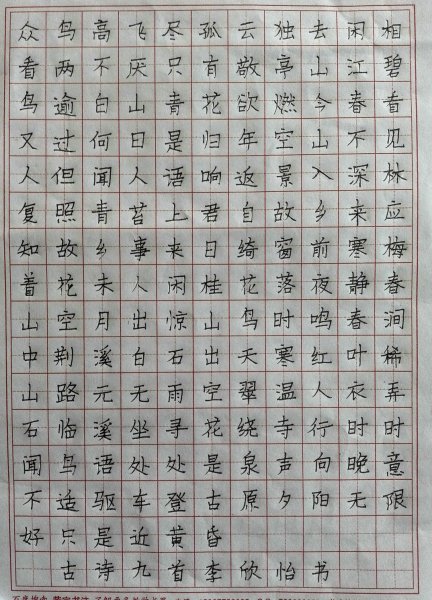 众鸟高飞尽孤云独去闲相
看两不厌只有敬亭山江碧
鸟逾白山青花欲燃今春看
又过何日是归年空山不见
人但闻人语响返景入深林
复照青苔上君自故乡来应
知故乡事来日绮窗前寒梅
着花未人闲桂花落夜静春
山空月出惊山鸟时鸣春涧
中荆溪白石出天寒红叶稀
山路元无雨空翠温人衣弄
石临溪坐寻花绕寺行时时
闻鸟语处处是泉声向晚意
不适驱车登古原夕阳无限
好只是近黄昏
古诗九首李欣怡书